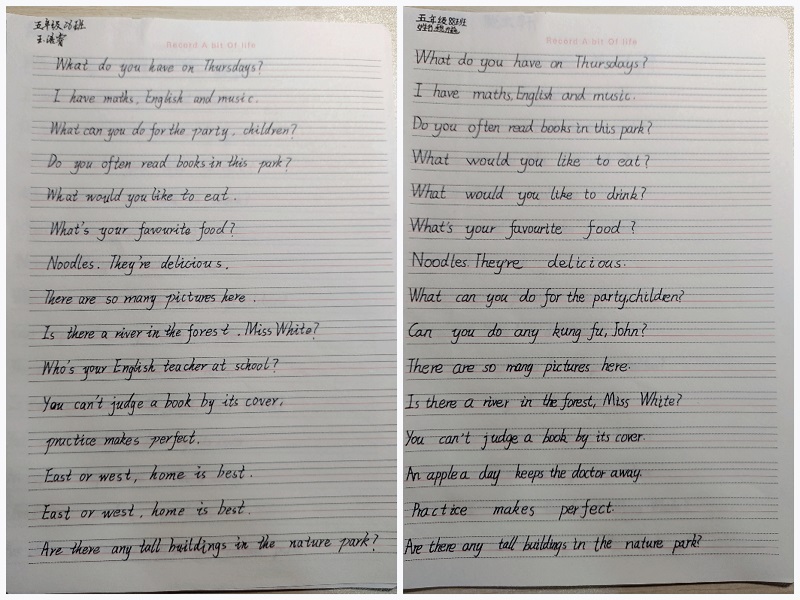 五年级
Record A bit Of life
What do you have on Thursdays?
I have maths, English and music.
What can you do for the party, children?
Do you often read books in this park?
What would you like to eat.
What's your favourite food?
Noodles. They're delicious.
There are so many pictures here.
Is there a river in the forest. Miss White?
Who's your English teacher at school?
You can't judge a book by its cover.
practice makes perfect.
East or west, home is best.
East or west, home is best.
Are there any tall buildings in the nature park?
五年级
Record A bit Of life
What do you have on Thursdays?
I have maths, English and music.
Do you often read books in this park?
What would you like to eat?
What would you like to drink?
What's your favourite food?
Noodles. They're delicious.
What can you do for the party,childen?
Can you do any kung fu, John?
There are so many pictures here.
Is there a river in the forest, Miss White?
You can't judge a book by its cover.
An apple a day keeps the doctor away.
Practice makes perfect.
Are there any tall buildings in the nature park?